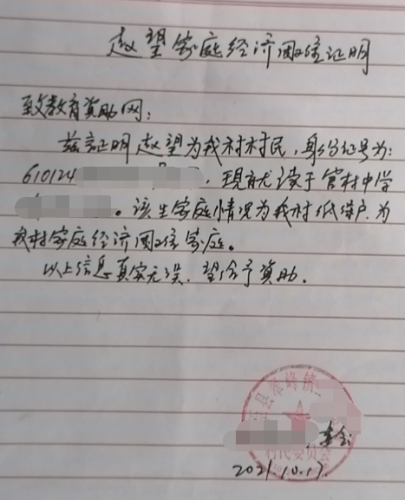 赵望家庭经济困难证明
致教育资助网：
兹证明赵望为我村村民，身份证号为：
610124 ，现就读于官村中学
。该生家庭情况为我村低保户，为
我村家庭经济困难家庭。
以上信息真实无误，望给予资助。
2021.10.17